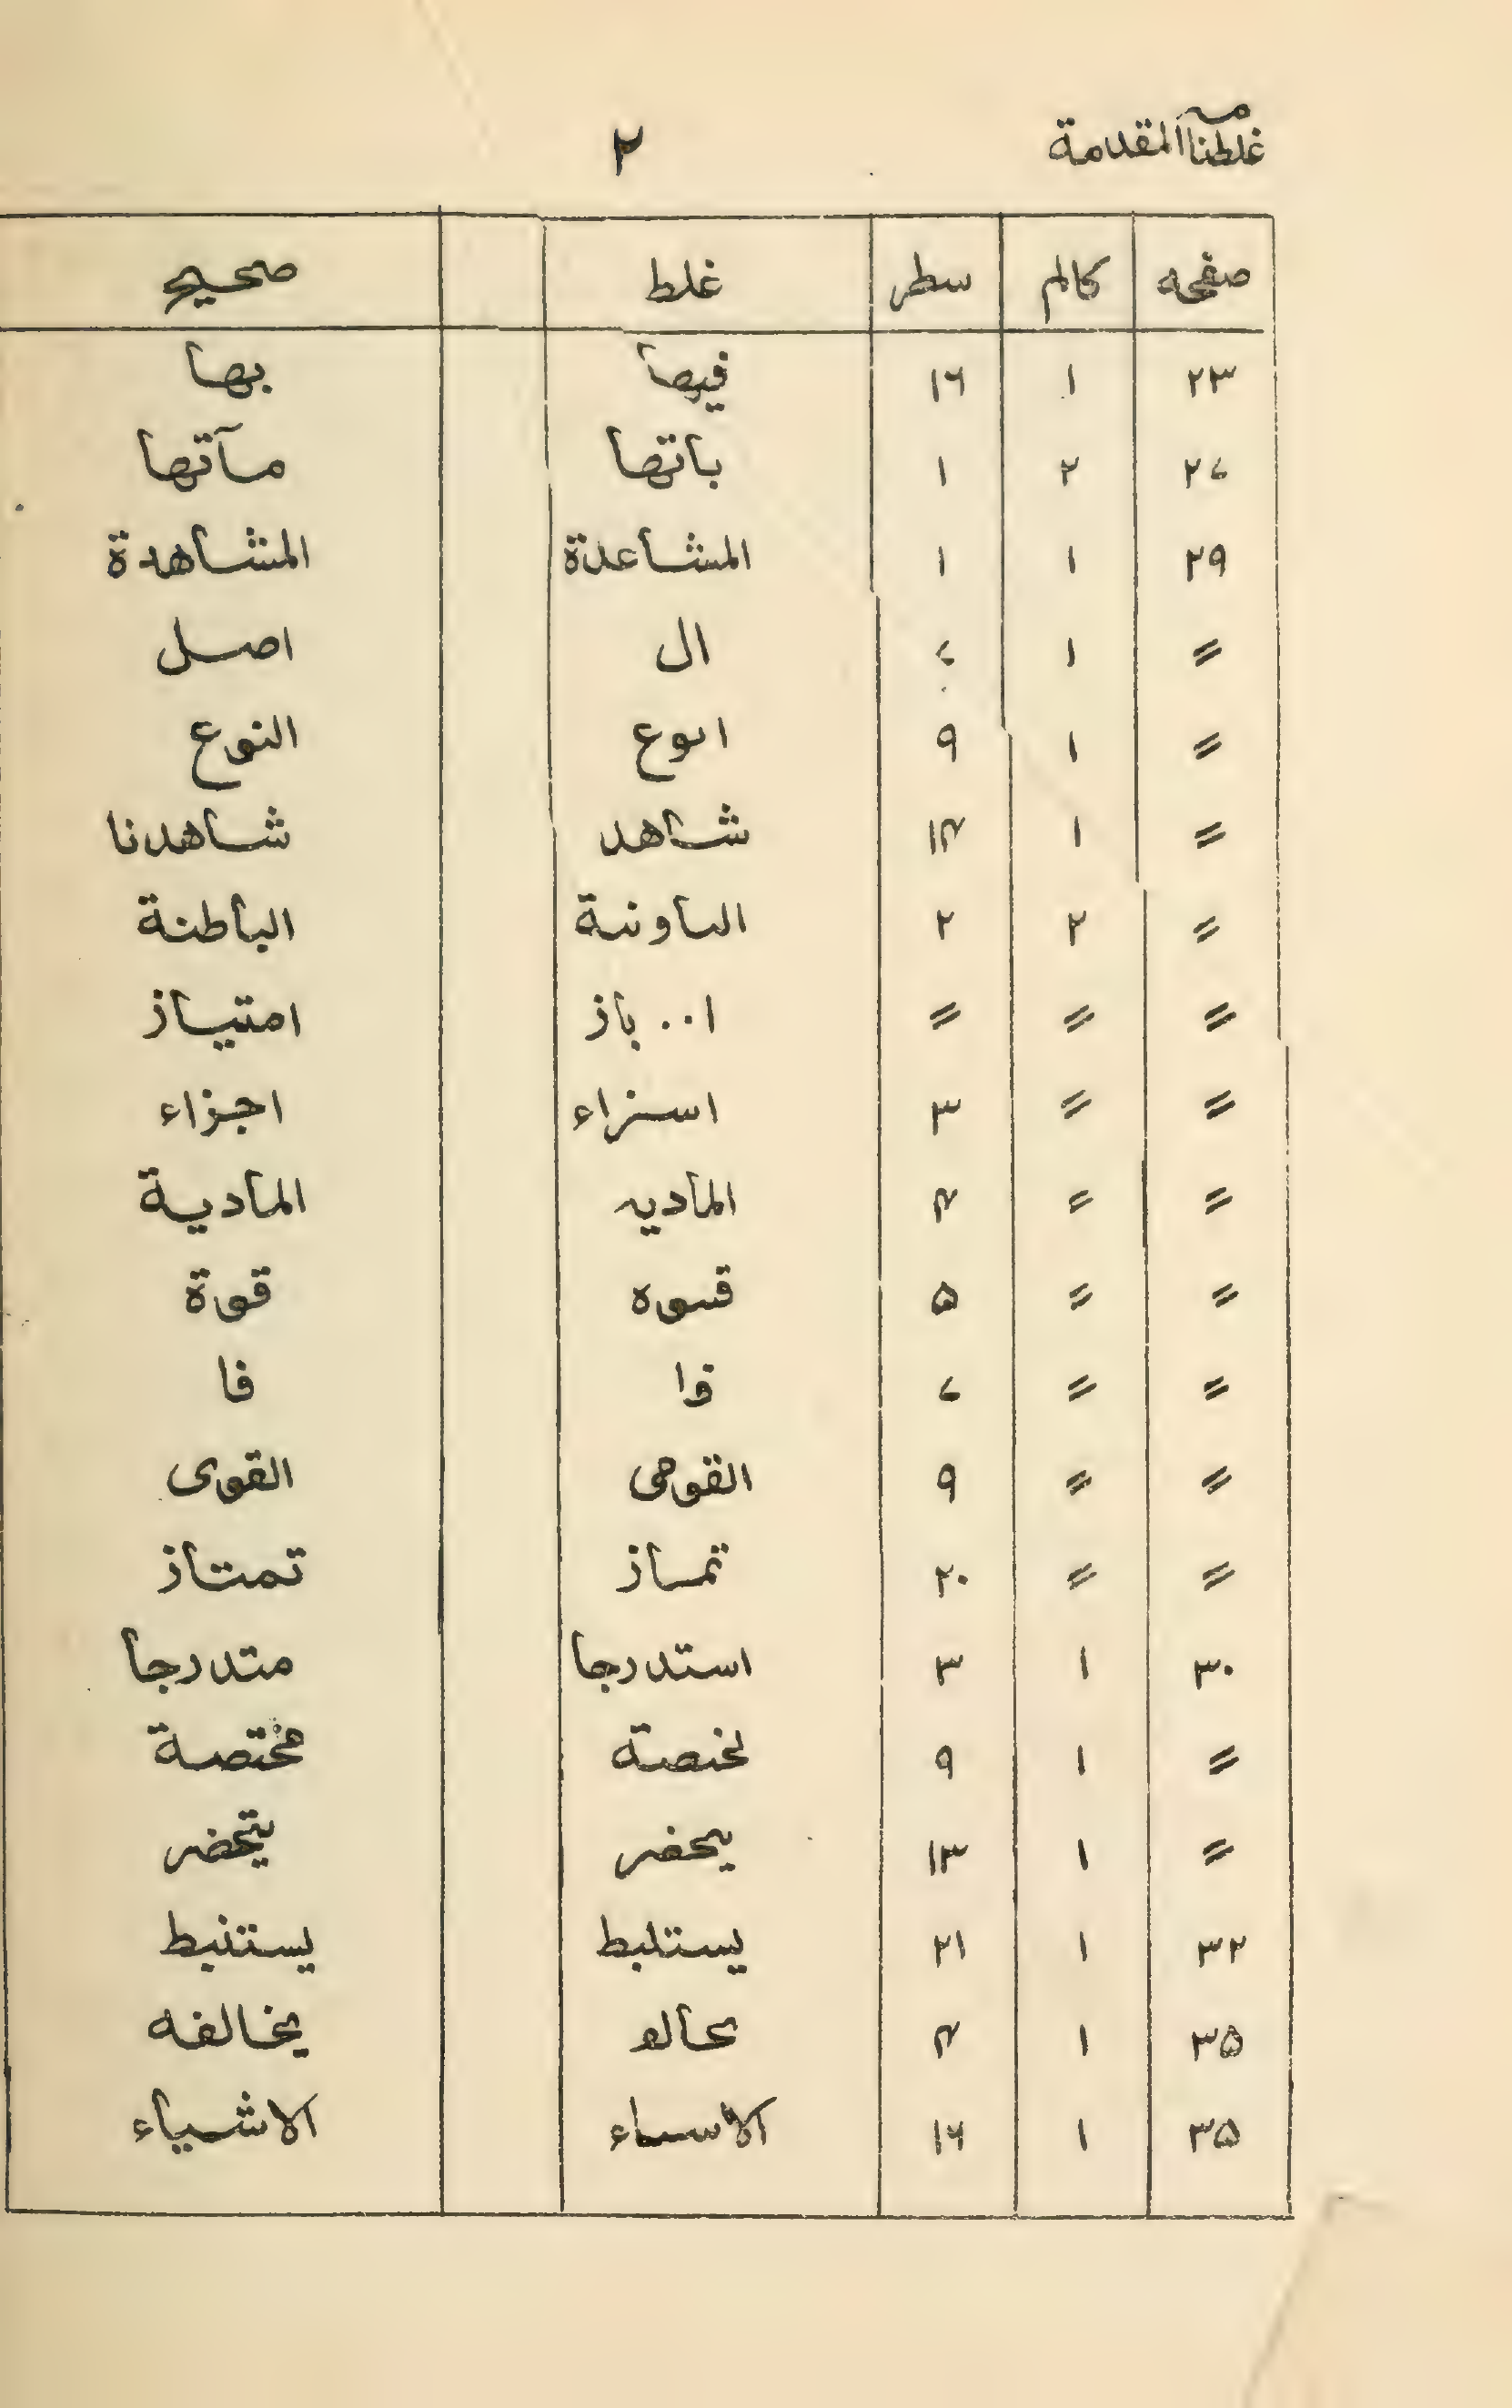 غلطنامہ المقدمة ٢
صفحه كالم سطر غلط صحيح
٢٣ ١ ١٦ فيها بها
٢٧ ٢ ١ باتها مآتها
٢٩ ١ ١ المشاعدة المشاهدة
= ١ ٧ ال اصل
= ١ ٩ اىوع النوع
= ١ ١۴ شاهد شاهدنا
= ٢ ٢ الساونىة الباطنة
= = = ا٠٠ باز امتياز
= = ٣ اسزاء اجزاء
= = ۴ الماديه المادية
= = ۵ قسوه قوة
= = ٧ فوا فا
= = ٩ القوهى القوى
= = ٢٠ تمساز تمتاز
٣٠ ١ ٣ استدرجا متدرجا
= ١ ٩ لخصتة مختصة
= ١ ١٣ يحضر يتحضر
٣٢ ١ ٢١ يستلبط يستنبط
٣۵ ١ ۴ يخالفه
٣۵ ١ ١٦ الاسىاء الاشياء